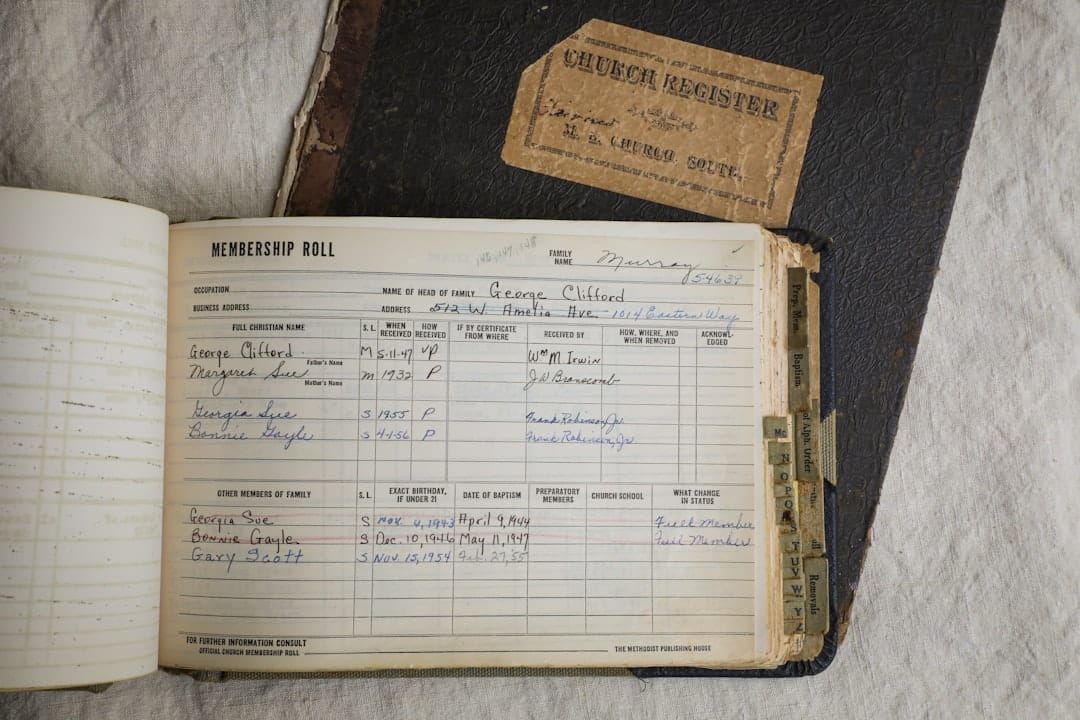 CHURCH REGISTER
M. E. CHURCH, SOUTH.
MEMBERSHIP ROLL 145, 147, 148 FAMILY NAME Murray
54639
OCCUPATION NAME OF HEAD OF FAMILY George Clifford
BUSINESS ADDRESS ADDRESS 512 W. Amelia Ave. - 1014 Eastern Way
FULL CHRISTIAN NAME S. L. WHEN RECEIVED HOW RECEIVED IF BY CERTIFICATE FROM WHERE RECEIVED BY HOW, WHERE, AND WHEN REMOVED ACKNOWL-EDGED
George Clifford M 5-11-47 VP Wm M Irwin
Father's Name
Margaret Sue M 1932 P J.W. Branscomb
Mother's Name
Georgia Sue S 1955 P Frank Robinson, Jr.
Bonnie Gayle S 4-1-56 P Frank Robinson, Jr.
OTHER MEMBERS OF FAMILY S. L. EXACT BIRTHDAY, IF UNDER 21 DATE OF BAPTISM PREPARATORY MEMBERS CHURCH SCHOOL WHAT CHANGE IN STATUS
Georgia Sue S Nov. 4, 1943 April 9, 1944 Full Member
Bonnie Gayle S Dec. 10, 1946 May 11, 1947 Full Member
Gary Scott S Nov. 15, 1954 Feb. 27, '55
FOR FURTHER INFORMATION CONSULT
OFFICIAL CHURCH MEMBERSHIP ROLL THE METHODIST PUBLISHING HOUSE
Prep. Mem.
Baptism.
of Alph. Order
Removals
Mc
N
O
P
S
T
U
V
W
Y
Z